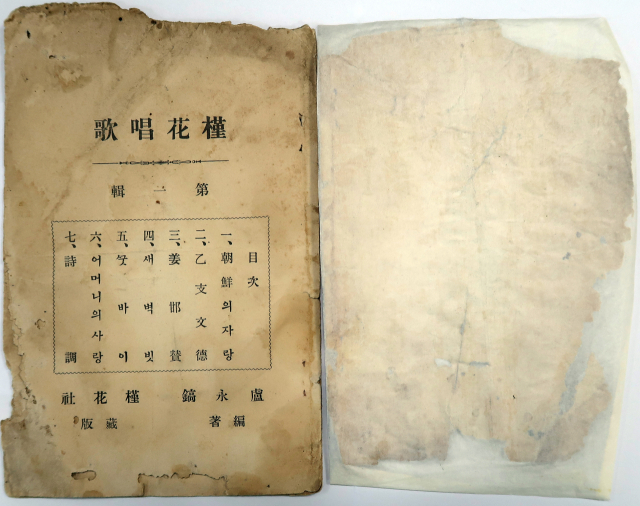 槿花唱歌
第一輯
目次
一、朝鮮의자랑
二、乙支文德
三、姜邯賛
四、새벽빗
五、바이
六、어머니의사랑
七、詩調
盧永鎬 編著
槿花社 藏版